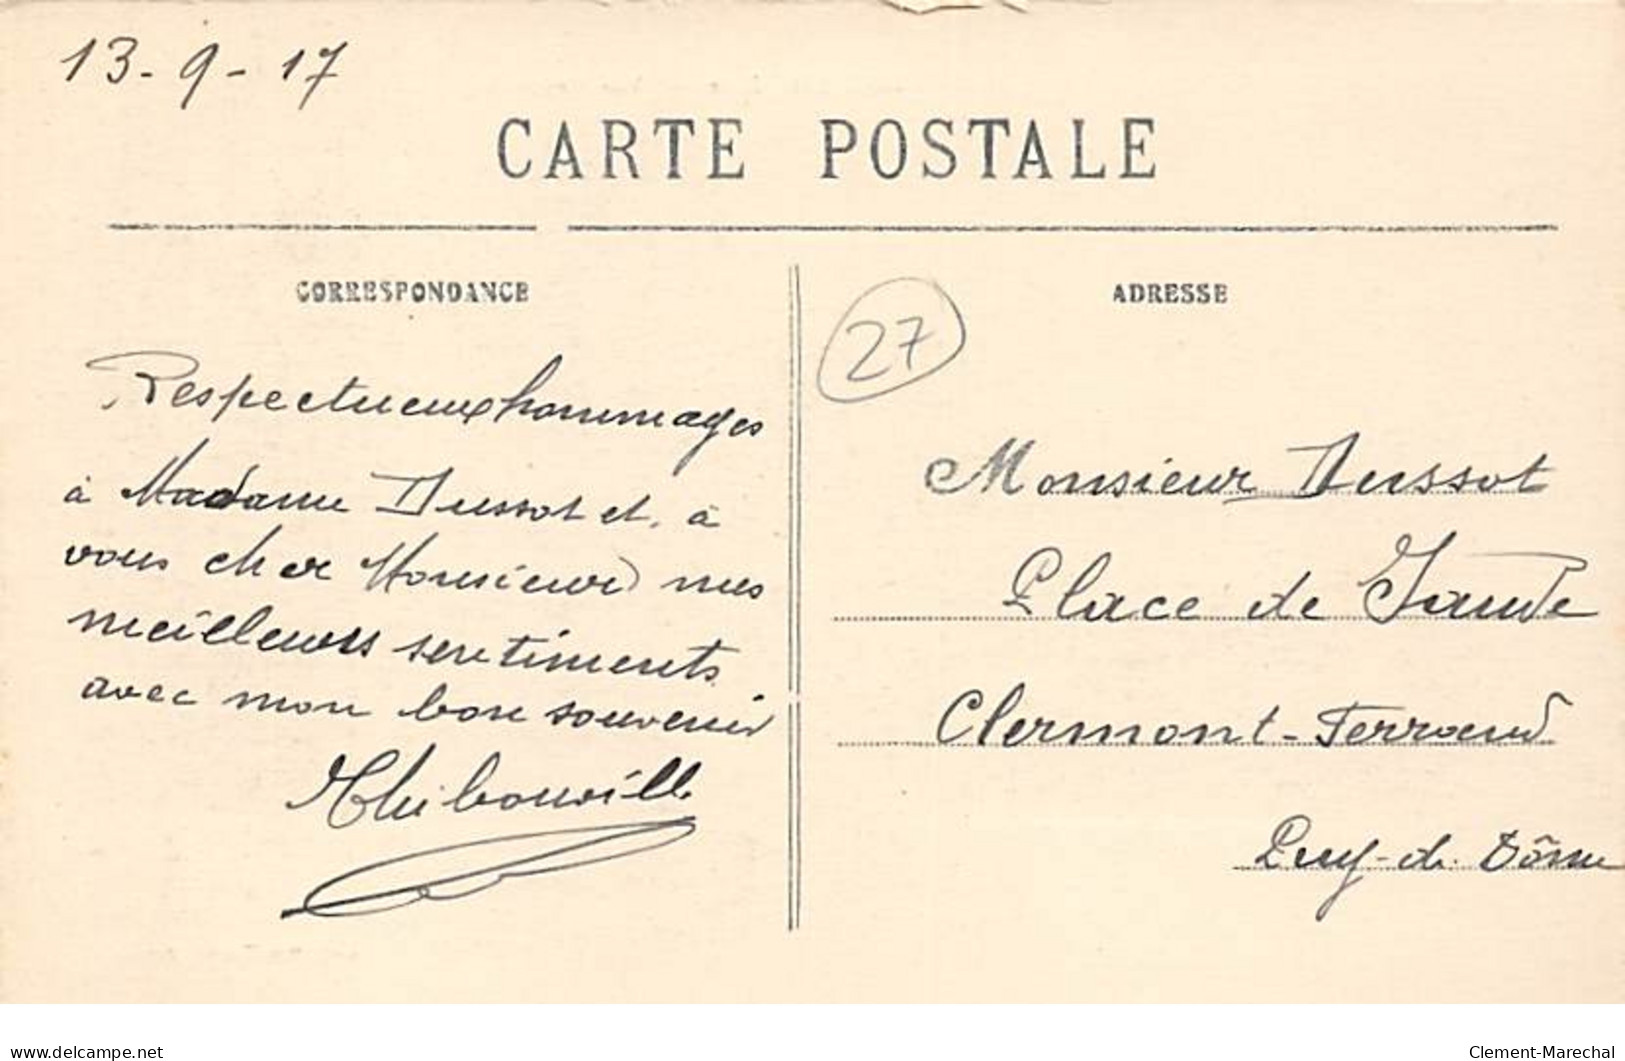 13-9-17
CARTE POSTALE
CORRESPONDANCE
Respectueux hommages
à Madame Dussot et, à
vous cher Monsieur mes
meilleurs sentiments
avec mon bon souvenir
Thibouville
ADRESSE
27
Monsieur Dussot
Place de Jaude
Clermont-Ferrand
Puy-de-Dôme
delcampe.net
Clement-Marechal